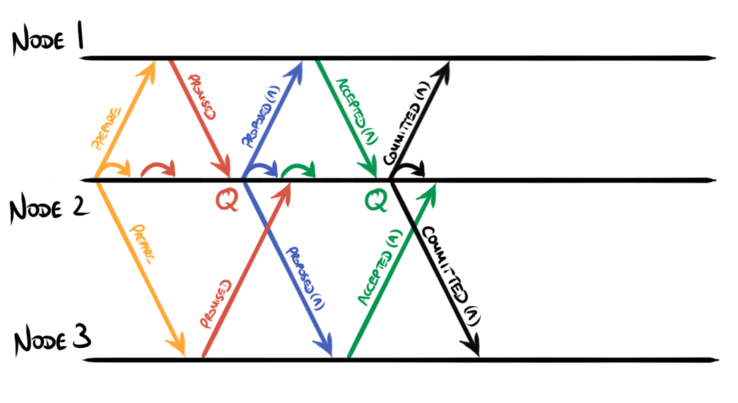 NODE 1
PREPARE
PROMISED
PROPOSED(A)
ACCEPTED(A)
COMMITTED(A)
NODE 2
Q
Q
PREPARE
PROMISED
PROPOSED(A)
ACCEPTED(A)
COMMITTED(A)
NODE 3